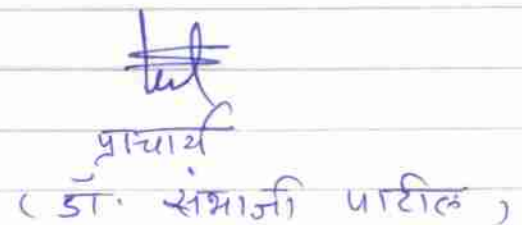 प्राचार्य
( डॉ. संभाजी पाटील )